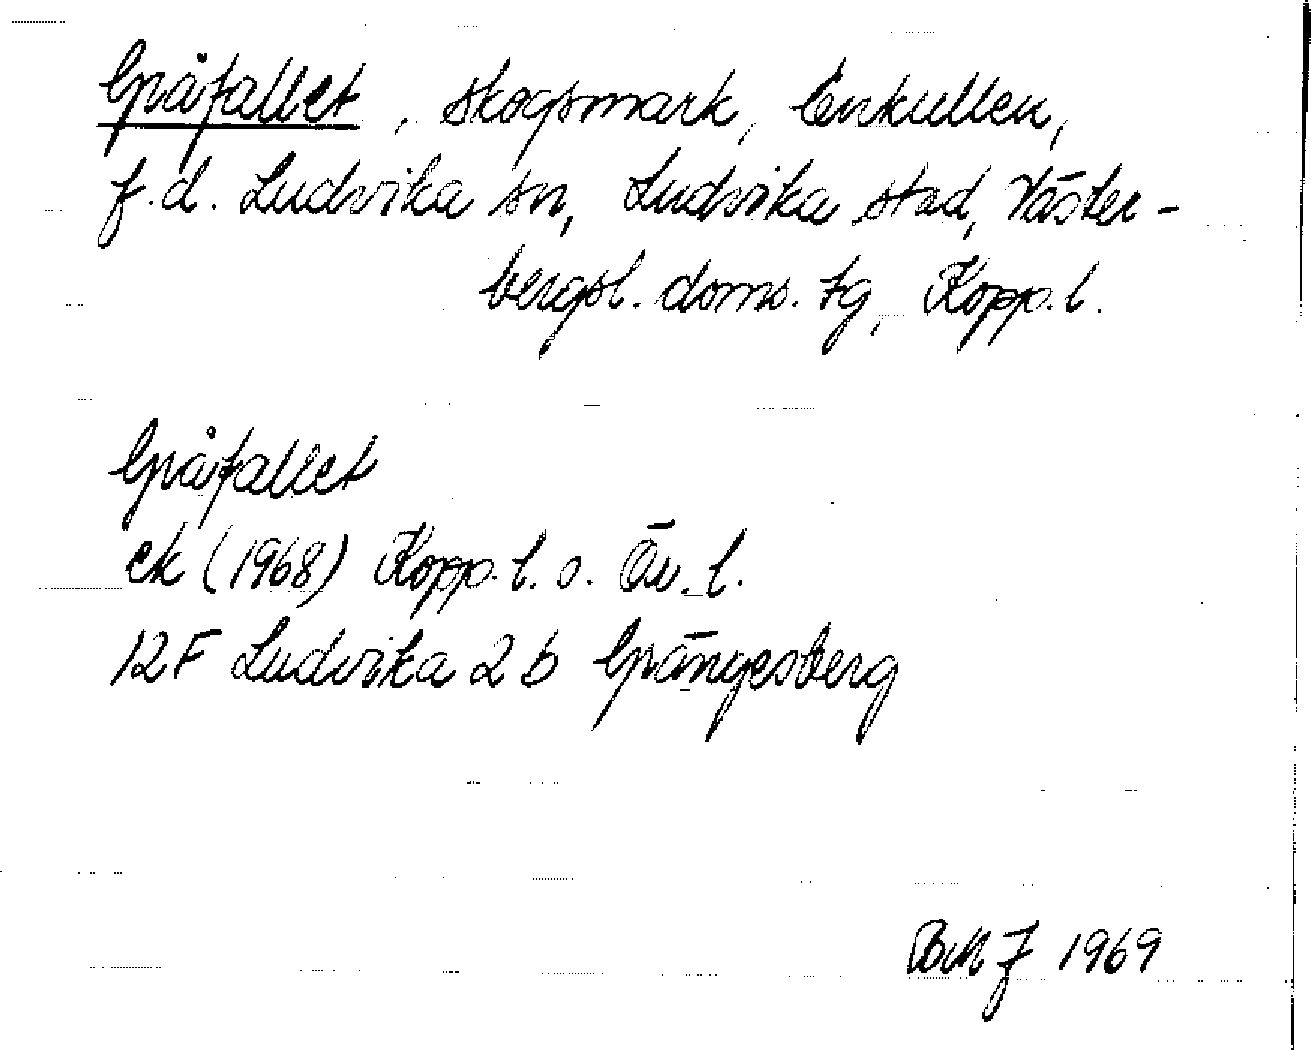 Gråfallet, skogsmark, Enkullen,
f.d. Ludvika sn, Ludvika stad, Väster-
bergsl. doms. tg, Kopp. l.
Gråfallet
ek (1968) Kopp. l. o. Ör. l.
12F Ludvika 2 b Grängesberg
1969